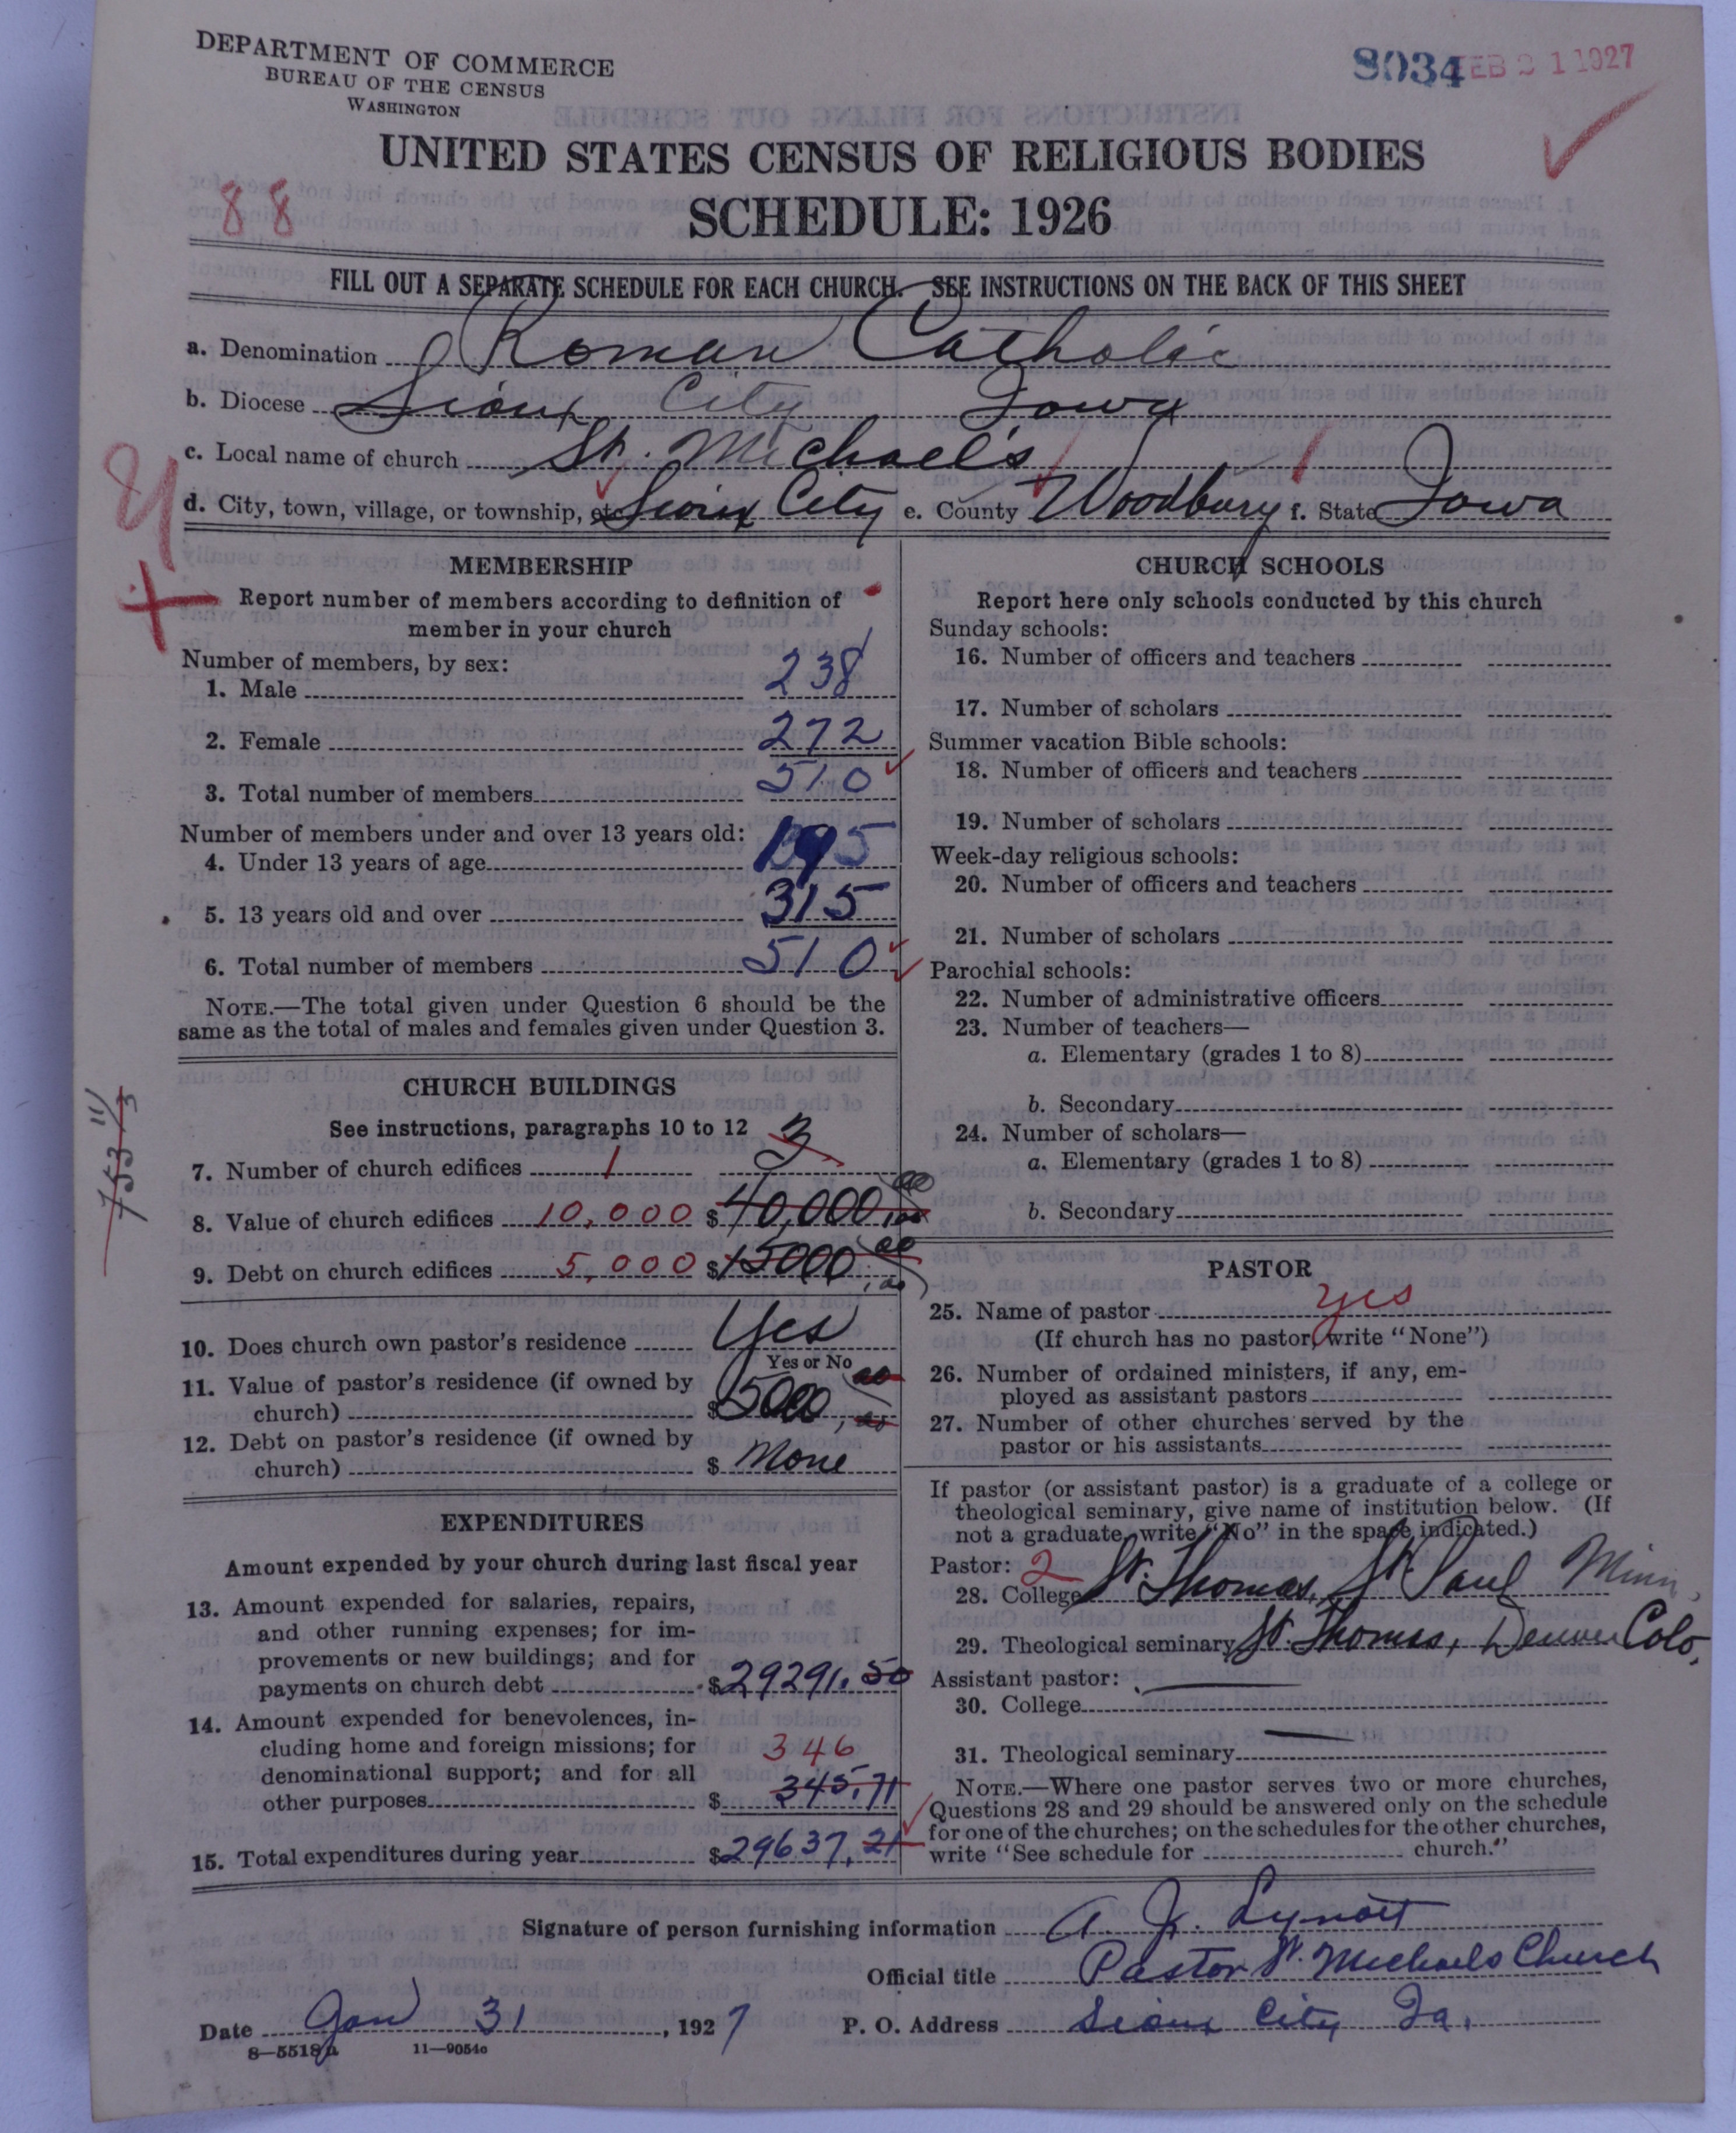 DEPARTMENT OF COMMERCE
BUREAU OF THE CENSUS
WASHINGTON
8034 FEB 21 1927
UNITED STATES CENSUS OF RELIGIOUS BODIES
88
SCHEDULE: 1926
FILL OUT A SEPARATE SCHEDULE FOR EACH CHURCH. SEE INSTRUCTIONS ON THE BACK OF THIS SHEET
a. Denomination Roman Catholic
b. Diocese Sioux City Iowa
c. Local name of church St. Michael's
d. City, town, village, or township, etc. Sioux City e. County Woodbury f. State Iowa
MEMBERSHIP
Report number of members according to definition of
member in your church
Number of members, by sex:
1. Male 238
2. Female 272
3. Total number of members 510
Number of members under and over 13 years old:
4. Under 13 years of age 195
5. 13 years old and over 315
6. Total number of members 510
NOTE.—The total given under Question 6 should be the
same as the total of males and females given under Question 3.
CHURCH BUILDINGS
See instructions, paragraphs 10 to 12
7. Number of church edifices 1 3
8. Value of church edifices 10,000 $40,000.00
9. Debt on church edifices 5,000 $15000.00
10. Does church own pastor's residence Yes
Yes or No
11. Value of pastor's residence (if owned by
church) $5000.00
12. Debt on pastor's residence (if owned by
church) $ None
EXPENDITURES
Amount expended by your church during last fiscal year
13. Amount expended for salaries, repairs,
and other running expenses; for im-
provements or new buildings; and for
payments on church debt $29291.50
14. Amount expended for benevolences, in-
cluding home and foreign missions; for 346
denominational support; and for all
other purposes $345.71
15. Total expenditures during year $29637.21
CHURCH SCHOOLS
Report here only schools conducted by this church
Sunday schools:
16. Number of officers and teachers
17. Number of scholars
Summer vacation Bible schools:
18. Number of officers and teachers
19. Number of scholars
Week-day religious schools:
20. Number of officers and teachers
21. Number of scholars
Parochial schools:
22. Number of administrative officers
23. Number of teachers—
a. Elementary (grades 1 to 8)
b. Secondary
24. Number of scholars—
a. Elementary (grades 1 to 8)
b. Secondary
PASTOR
25. Name of pastor yes
(If church has no pastor, write "None")
26. Number of ordained ministers, if any, em-
ployed as assistant pastors
27. Number of other churches served by the
pastor or his assistants
If pastor (or assistant pastor) is a graduate of a college or
theological seminary, give name of institution below. (If
not a graduate, write "No" in the space indicated.)
Pastor: 2
28. College St. Thomas, St. Paul Minn.
29. Theological seminary St. Thomas, Denver Colo.
Assistant pastor:
30. College
31. Theological seminary
NOTE.—Where one pastor serves two or more churches,
Questions 28 and 29 should be answered only on the schedule
for one of the churches; on the schedules for the other churches,
write "See schedule for church."
Signature of person furnishing information A. J. Lynott
Official title Pastor St. Michaels Church
Date Jan 31, 1927 P. O. Address Sioux City Ia.
8—5518a 11—9054o